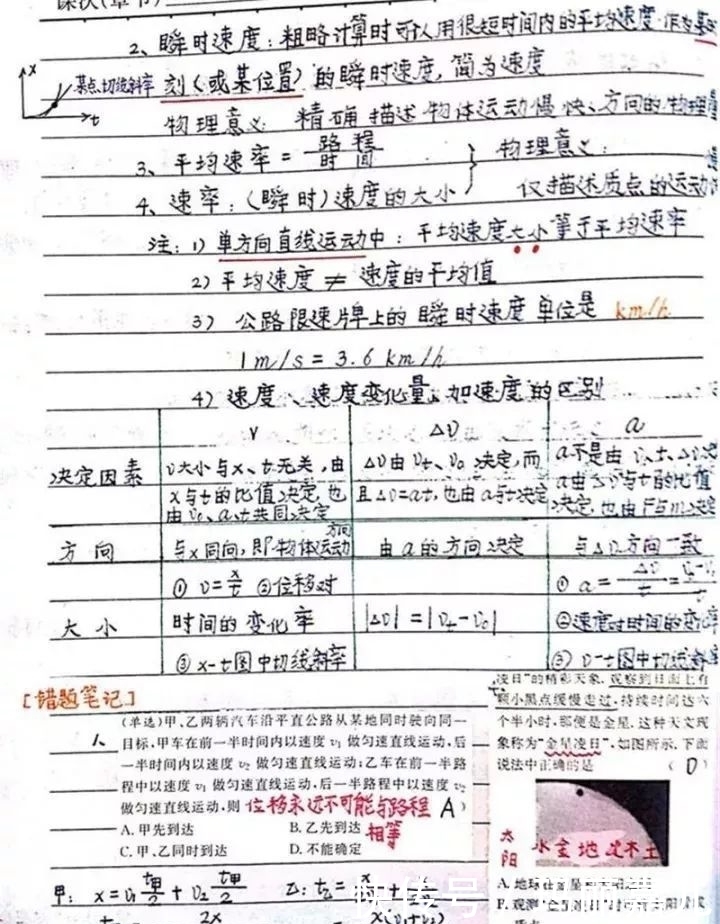 2、瞬时速度：粗略计算时可以用很短时间内的平均速度作为某
x
某点切线斜率
t
刻（或某位置）的瞬时速度，简为速度
物理意义：精确描述物体运动慢快、方向的物理量
3、平均速率 = 路程/时间
物理意义：
4、速率：（瞬时）速度的大小
仅描述质点的运动
注：1）单方向直线运动中：平均速度大小等于平均速率
2）平均速度 ≠ 速度的平均值
3）公路限速牌上的瞬时速度单位是 km/h
1m/s = 3.6 km/h
4）速度、速度变化量、加速度的区别
v
Δv
a
决定因素
v大小与x、t无关，由
x与t的比值决定，也
由v₀、a、t共同决定
Δv由vt、v₀决定，而
且Δv=at，也由a与t决定
a不是由v、t、Δv决
a由Δv与t的比值
决定，也由F与m决定
方向
与x同向，即物体运动
方向
由a的方向决定
与Δv方向一致
大小
① v=x/t ②位移对
时间的变化率
③ x-t图中切线斜率
|Δv| = |vt-v₀|
① a=Δv/t=
②速度对时间的变化率
③ v-t图中切线斜
[错题笔记]
1、
(单选)甲、乙两辆汽车沿平直公路从某地同时驶向同一
目标,甲车在前一半时间内以速度 v₁ 做匀速直线运动,后
一半时间内以速度 v₂ 做匀速直线运动;乙车在前一半路
程中以速度 v₁ 做匀速直线运动,后一半路程中以速度 v₂
做匀速直线运动,则
位移永远不可能与路程
A）
A.甲先到达
B.乙先到达
相等
C.甲、乙同时到达
D.不能确定
甲：x=v₁ t甲/2 + v₂ t甲/2
乙：t₂=
2x
凌日"的精彩天象,观察到日面上有
颗小黑点缓慢走过,持续时间达六
个半小时,那便是金星.这种天文现
象称为"金星凌日",如图所示.下面
说法中正确的是
（D）
太
阳
水金地火木土
A.地球在
B.观测